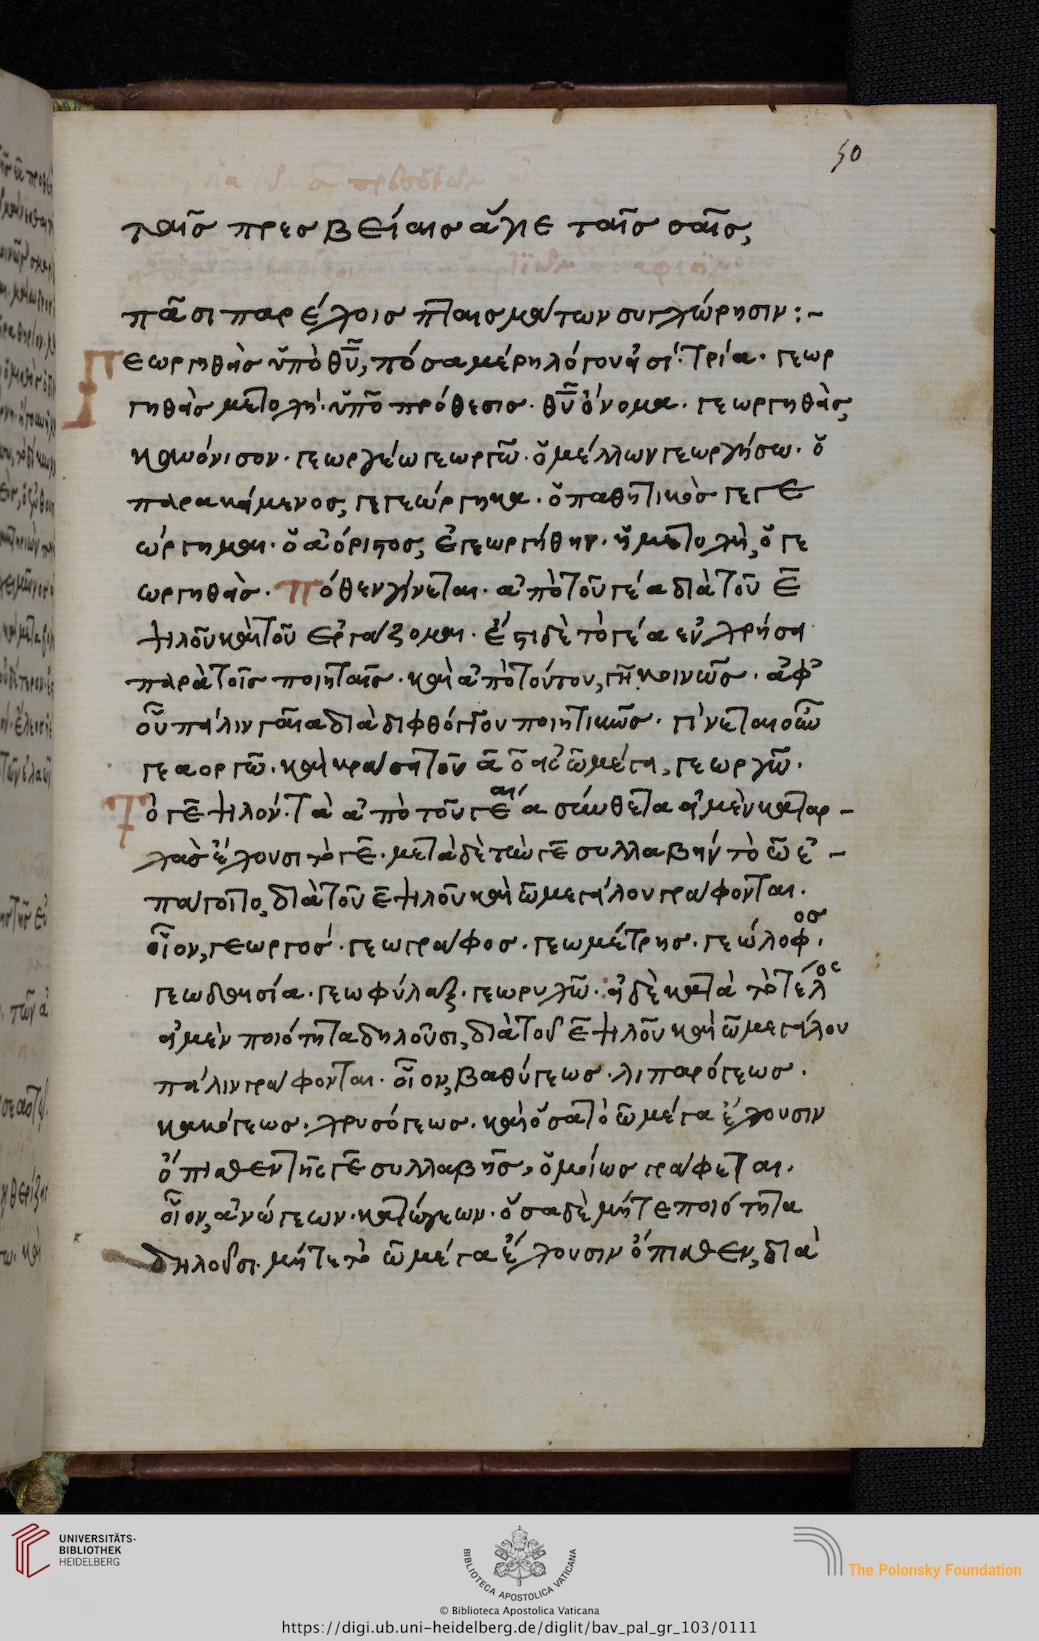 50
ταῖς πρεσβείαις ἅγιε ταῖς σαῖς,
πᾶσι παρέχοις πταισμάτων συγχώρησιν :~
Γεωργηθὰς ὑπὸ θῦ, πόσα μέρη λόγου εἰσί· τρία· γεωρ
γηθὰς μετοχή· ὑπὸ πρόθεσις· θῦ ὄνομα· γεωργηθὰς
κανόνισον· γεωργέω γεωργῶ· ὁ μέλλων γεωργήσω· ὁ
παρακείμενος, γεγεώργηκα· ὁ παθητικὸς γεγε
ώργημαι· ὁ ἀόριστος, ἐγεωργήθην· ἡ μετοχὴ, ὁ γε
ωργηθὰς· Πόθεν γίνεται· ἀπὸ τοῦ γέα διὰ τοῦ ε̄
ψιλοῦ καὶ τοῦ ἐργάζομαι· ἔστι δὲ τὸ γέα ἐν χρήσει
παρὰ τοῖς ποιηταῖς· καὶ ἀπὸ τούτου, γῆ κοινῶς· ἀφ'
οὗ πάλιν γαῖα διὰ διφθόγγου ποιητικῶς· γίνεται οὖν
γεαοργῶ· καὶ κράσει τοῦ ᾱ ο̄ εἰς ω̄ μέγα, γεωργῶ·
Τὸ γε̄ ψιλόν· Τὰ ἀπὸ τοῦ γέα σύνθετα εἰ μὲν κατ' ἀρ-
χὰς ἔχουσι τὸ γε̄· μετὰ δὲ τὴν γε̄ συλλαβήν τὸ ω̄ ἐ-
πάγοιτο, διὰ τοῦ ε̄ ψιλοῦ καὶ ω̄ μεγάλου γράφονται·
οἷον, γεωργος· γεωγράφος· γεωμέτρης· γεώλοφος·
γεωδαισία· γεωφύλαξ· γεωρυχῶ· εἰ δὲ κατὰ τὸ τέλος
εἰ μὲν ποιότητα δηλοῦσι, διὰ τοῦ ε̄ ψιλοῦ καὶ ω̄ μεγάλου
πάλιν γράφονται· οἷον, βαθύγεως· λιπαρόγεως·
κακόγεως· χρυσόγεως· καὶ ὅσα τὸ ω̄ μέγα ἔχουσιν
ὄπισθεν τῆς γε̄ συλλαβῆς, ὁμοίως γράφεται·
οἷον, ἀνώγεων· κατώγεων· ὅσα δὲ μήτε ποιότητα
δηλοῦσι· μήτε τὸ ω̄ μέγα ἔχουσιν ὄπισθεν, διὰ
UNIVERSITÄTS-
BIBLIOTHEK
HEIDELBERG
BIBLIOTECA APOSTOLICA VATICANA
The Polonsky Foundation
© Biblioteca Apostolica Vaticana
https://digi.ub.uni-heidelberg.de/diglit/bav_pal_gr_103/0111